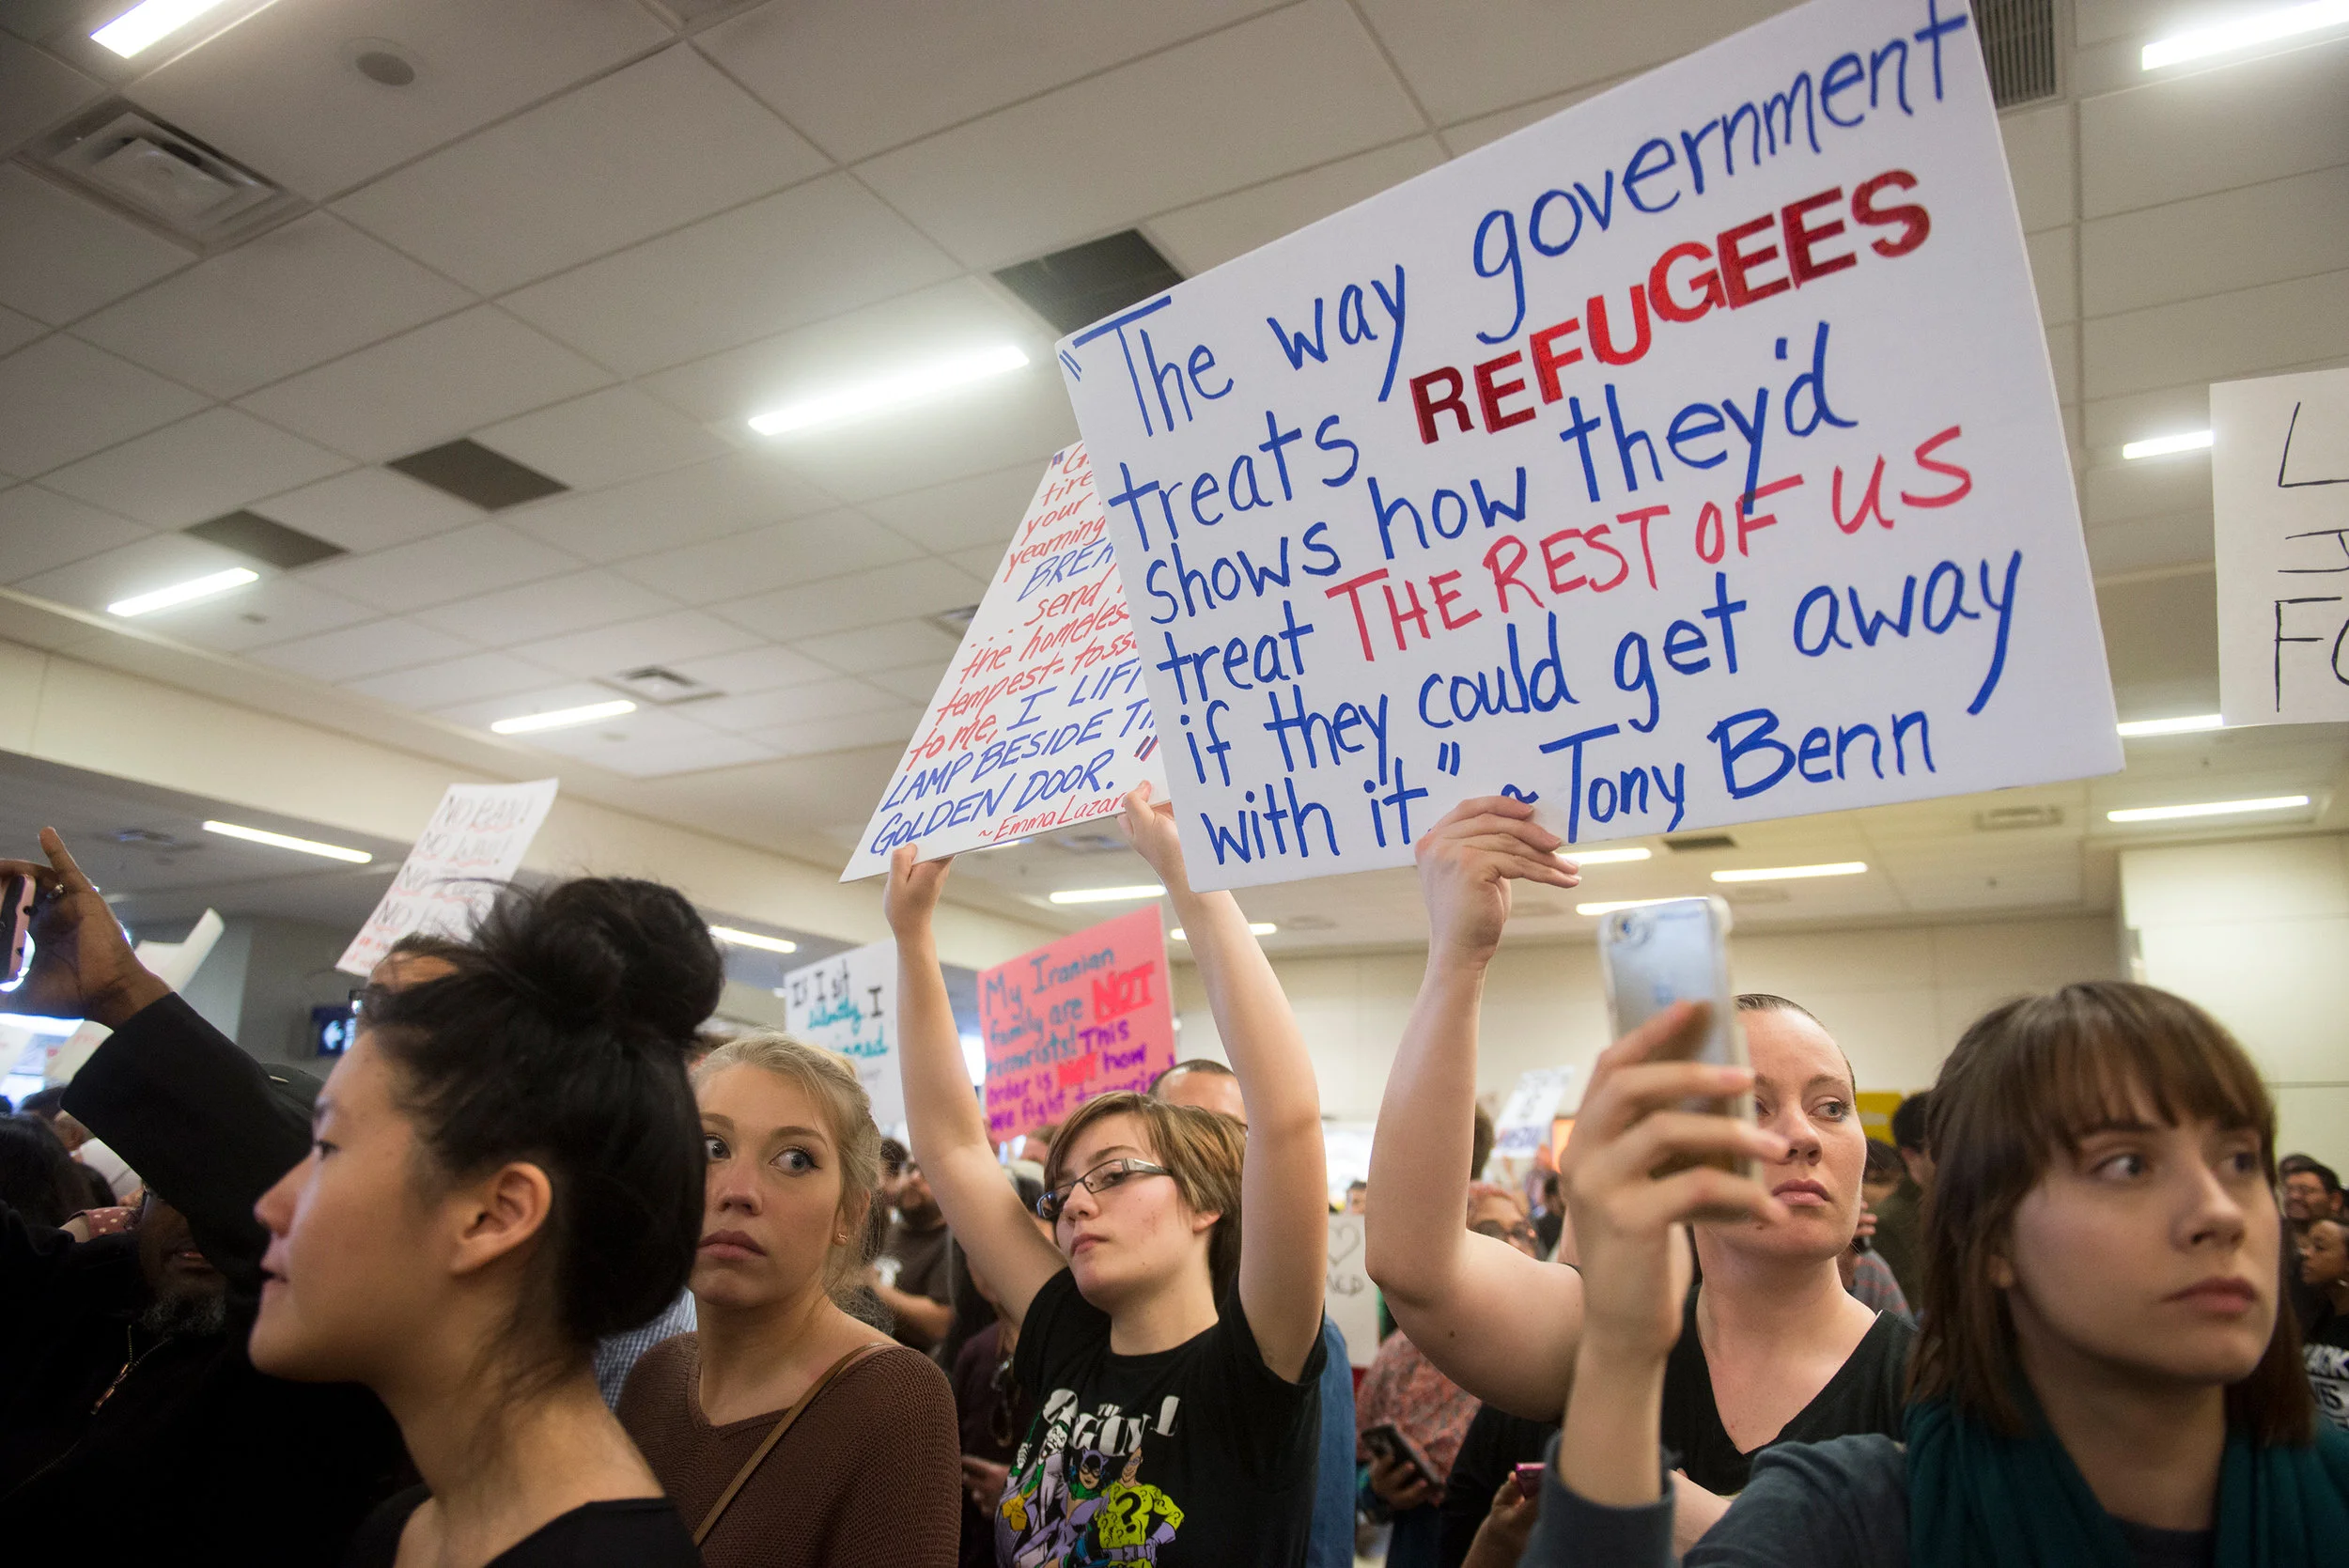 "The way government
treats REFUGEES
shows how they'd
treat THE REST OF US
if they could get away
with it" ~ Tony Benn
"G
tire
your
yearning
BREA
... send
the homeless
tempest-toss
to me, I LIF
LAMP BESIDE TH
GOLDEN DOOR."
~Emma Lazar
NO BAN!
NO WALL!
NO
NO
If I sit
silently, I
My Iranian
family are NOT
terrorists! This
order is NOT how
we fight
L
FO